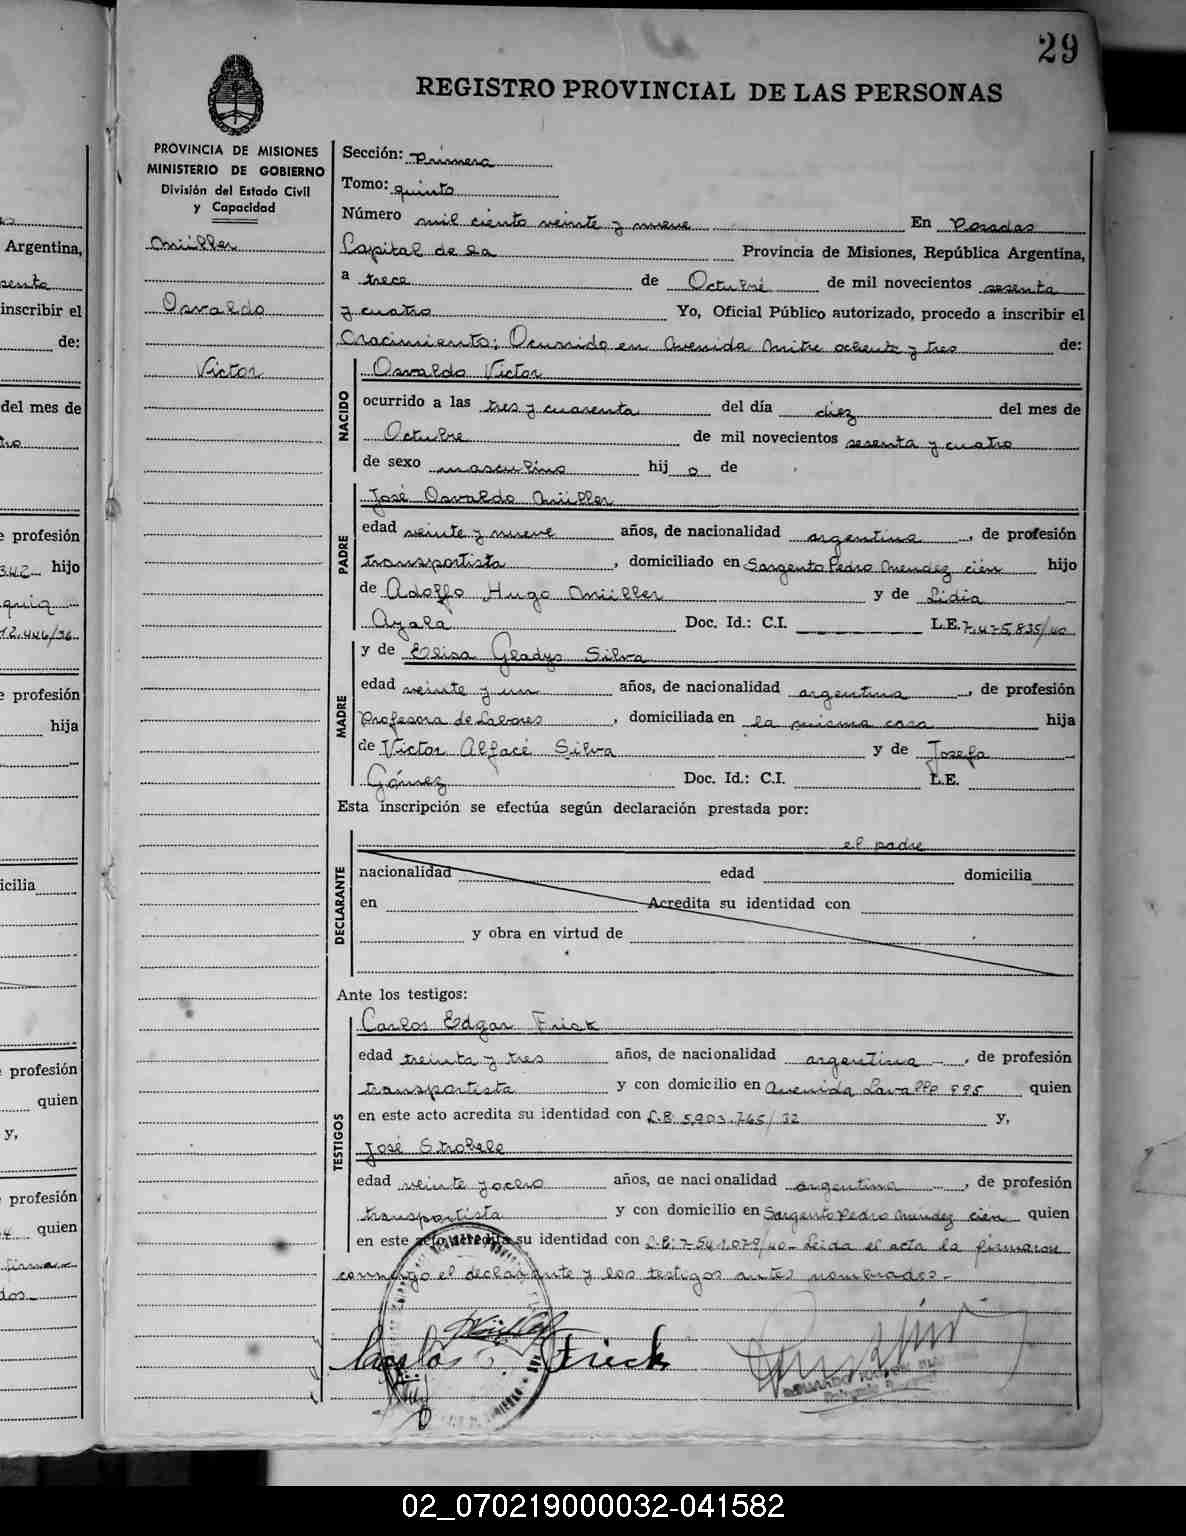 29
REGISTRO PROVINCIAL DE LAS PERSONAS
PROVINCIA DE MISIONES
MINISTERIO DE GOBIERNO
División del Estado Civil
y Capacidad
Müller
Osvaldo
Victor
Sección: Primera
Tomo: quinto
Número mil ciento veinte y nueve En Posadas
Capital de la Provincia de Misiones, República Argentina,
a trece de Octubre de mil novecientos sesenta
y cuatro Yo, Oficial Público autorizado, procedo a inscribir el
Nacimiento: Ocurrido en Avenida Mitre ochenta y tres de:
NACIDO
Osvaldo Victor
ocurrido a las tres y cuarenta del día diez del mes de
Octubre de mil novecientos sesenta y cuatro
de sexo masculino hij o de
PADRE
José Osvaldo Müller
edad veinte y nueve años, de nacionalidad argentina, de profesión
transportista, domiciliado en Sargento Pedro Mendez cien hijo
de Adolfo Hugo Müller y de Lidia
Ayala Doc. Id.: C.I. L.E. 7.475.835/40
MADRE
y de Elisa Gladys Silva
edad veinte y un años, de nacionalidad argentina, de profesión
Profesora de Labores, domiciliada en la misma casa hija
de Victor Alfacé Silva y de Josefa
Gómez Doc. Id.: C.I. L.E.
Esta inscripción se efectúa según declaración prestada por:
DECLARANTE
el padre
nacionalidad edad domicilia
en Acredita su identidad con
y obra en virtud de
Ante los testigos:
TESTIGOS
Carlos Edgar Frick
edad treinta y tres años, de nacionalidad argentina, de profesión
transportista y con domicilio en Avenida Lavalle 895 quien
en este acto acredita su identidad con L.E. 5.903.765/32 y,
José Strohele
edad veinte y ocho años, de nacionalidad argentina, de profesión
transportista y con domicilio en Sargento Pedro Mendez cien quien
en este acto acredita su identidad con L.E: 7.541.079/40- Leida el acta la firmaron
conmigo el declarante y los testigos antes nombrados.-
Carlos E. Frick
02_070219000032-041582